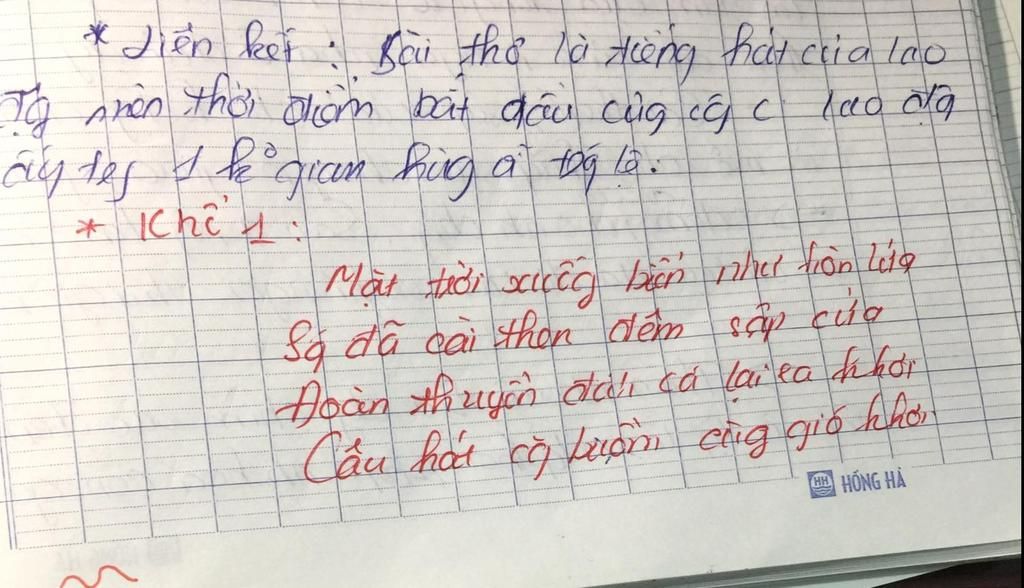 * Liên kết : Bài thơ là tiếng hát của lao
Tg nên thời điểm bắt đầu cũg cg c lao đg
ấy tes 1 k° gian hùg
* Khổ 1 :
Mặt trời xuốg biển như hòn lửa
Sg đã cài then đêm sập cửa
Đoàn thuyền đáh cá lại ra khơi
Câu hát cg buồm cùg gió khơi
HH HỒNG HÀ